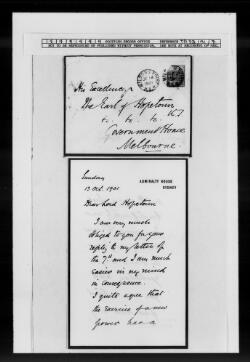 His Excellency
The Earl of Hopetoun
K.T.
&c. &c. &c.
Government House
Melbourne
ADMIRALTY HOUSE
SYDNEY
Sunday
13 Oct. 1901
Dear Lord Hopetoun
I am very much
obliged to you for your
reply to my letter of
the 7th and I am much
easier in my mind
in consequence.
I quite agree that
the exercise of a new
power has a